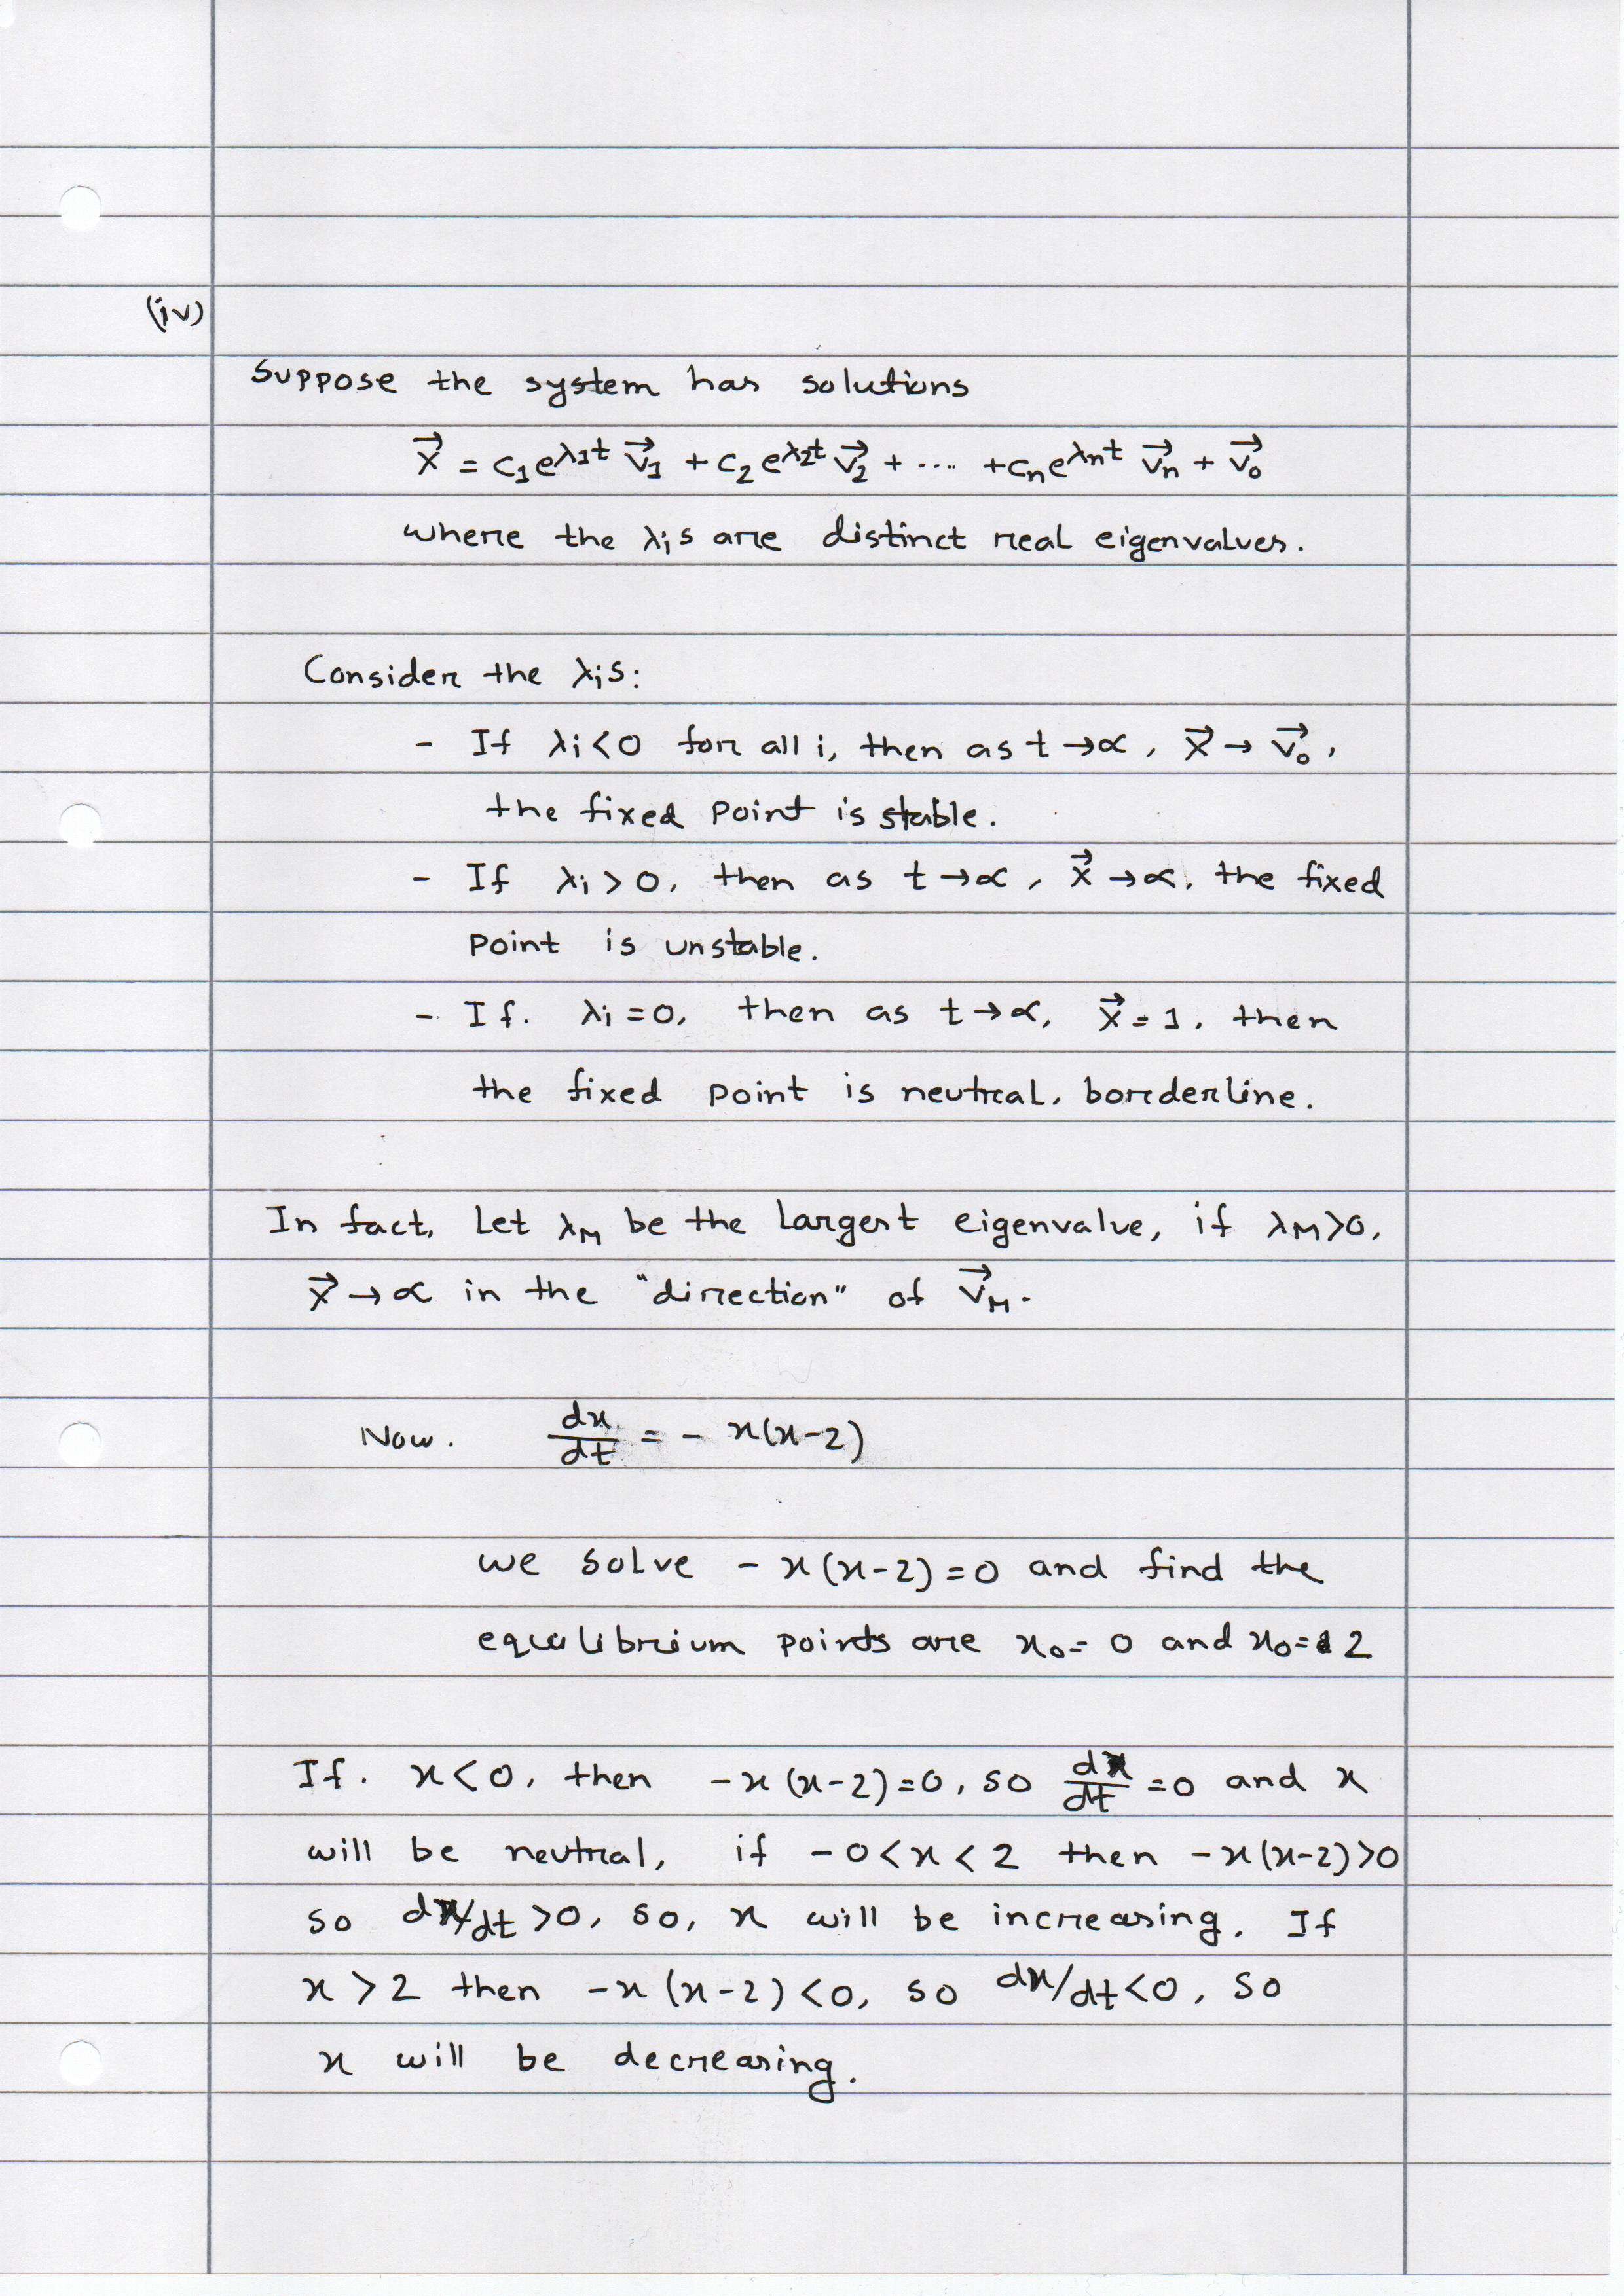 (iv)
Suppose the system has solutions
x⃗ = c₁e^λ₁t v⃗₁ + c₂e^λ₂t v⃗₂ + .... + cₙe^λₙt v⃗ₙ + v⃗₀
where the λᵢs are distinct real eigenvalues.
Consider the λᵢs:
- If λᵢ<0 for all i, then as t→∝, x⃗ → v⃗₀,
the fixed point is stable.
- If λᵢ>0, then as t→∝, x⃗→∝, the fixed
point is unstable.
- If. λᵢ=0, then as t→∝, x⃗=1, then
the fixed point is neutral, borderline.
In fact, Let λ_M be the largest eigenvalue, if λ_M>0,
x⃗→∝ in the "direction" of v⃗_M.
Now. dx/dt = - x(x-2)
we solve - x(x-2)=0 and find the
equilibrium points are x₀= 0 and x₀= 2
If. x<0, then -x(x-2)=0, so dx/dt =0 and x
will be neutral, if -0<x<2 then -x(x-2)>0
so dx/dt >0, so, x will be increasing. If
x>2 then -x(x-2)<0, so dx/dt<0, so
x will be decreasing.